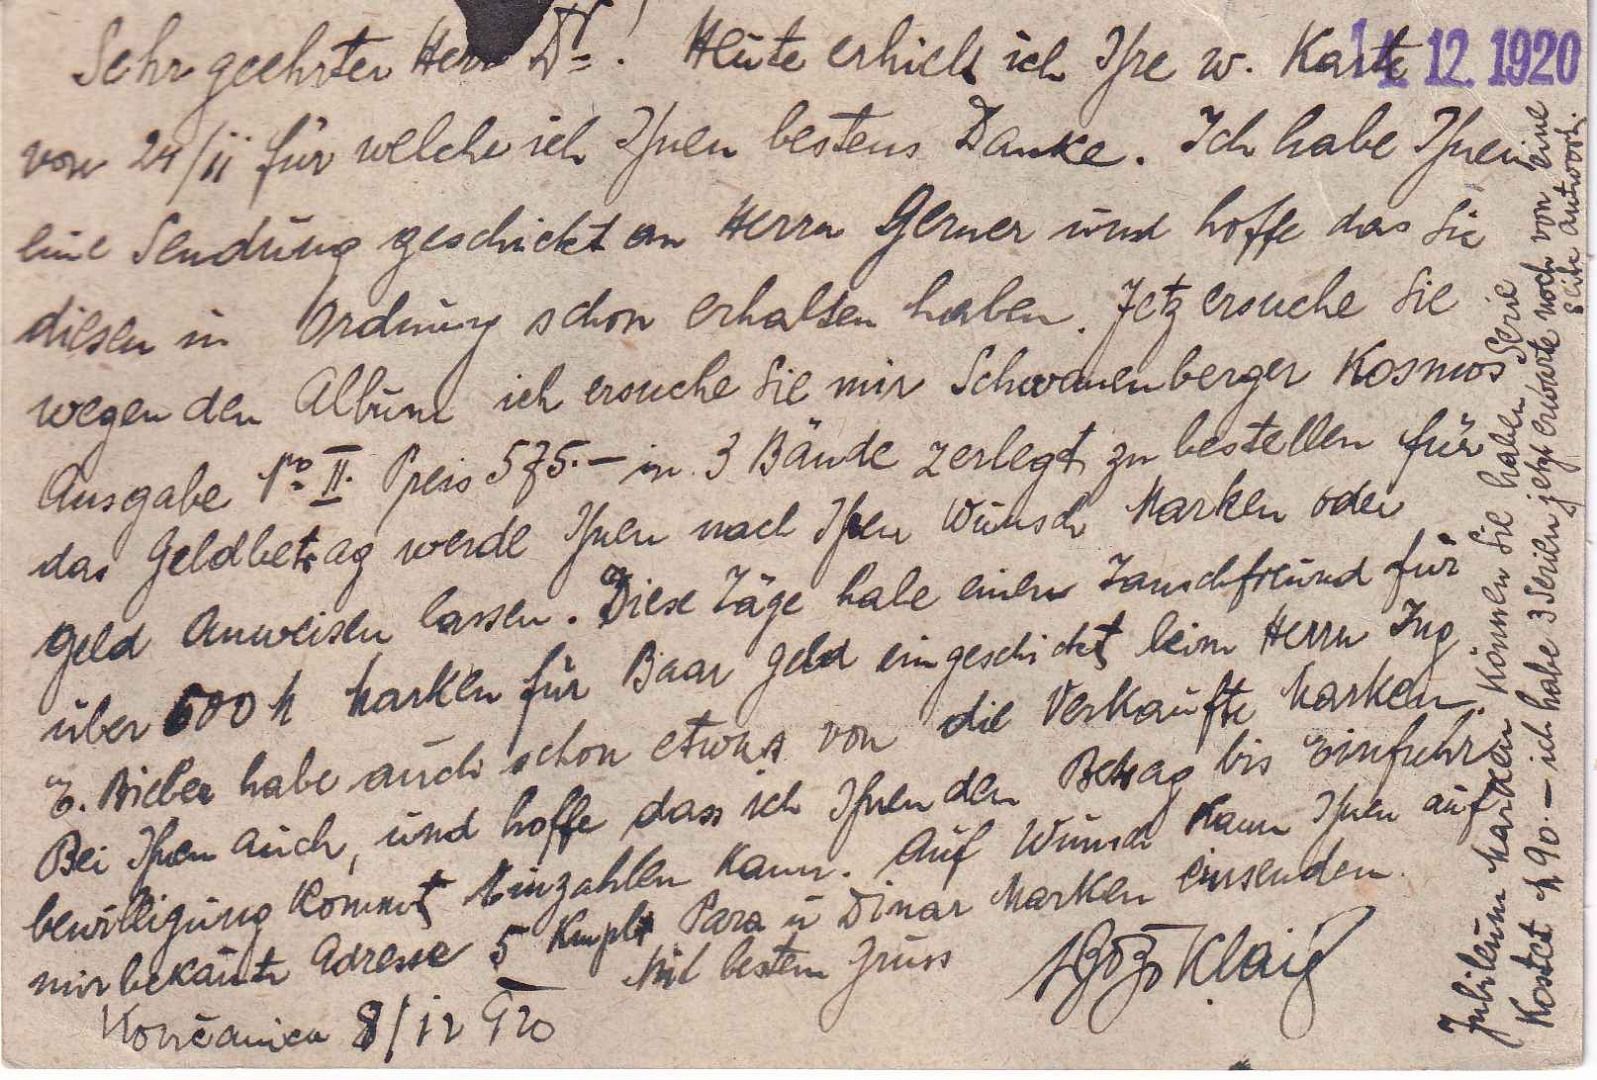 Sehr geehrter Herr Dr! Heute erhielt ich Ihre w. Karte
14. 12. 1920
von 24/II für welche ich Ihnen bestens Danke. Ich habe Ihnen
eine Sendung geschickt an Herrn Gerner und hoffe das Sie
diesen in Ordnung schon erhalten haben. Jetz ersuche Sie
wegen den Album ich ersuche Sie mir Schwanenberger Kosmos
Ausgabe No II. Preis 575.- in 3 Bände zerlegt zu bestellen für
das Geldbetrag werde Ihnen nach Ihen Wunsch Marken oder
Geld Anweisen lassen. Diese Täge habe einen Tauschfreund für
über 600 K Marken für Baar Geld eingeschickt beim Herrn Ing
E. Bieber habe auch schon etwas von die Verkaufte Marken.
Bei Ihnen auch, und hoffe dass ich Ihnen den Betrag bis Einfuhr
bewilligung kommt Einzahlen kann. Auf Wunsch kann Ihnen auf
mir bekannte Adresse 5 Kmplt Para u Dinar Marken einsenden.
Mit bestem Gruss
Končanica 8/12 920
Jubileum Marken Können Sie haben Serie
Kostet K 90.- ich habe 3 Serien jetzt erwarte noch von eine
Seite antwort.